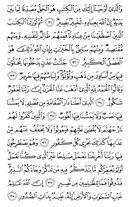 وَالَّذِي أَوْحَيْنَا إِلَيْكَ مِنَ الْكِتَٰبِ هُوَ الْحَقُّ مُصَدِّقًا لِّمَا بَيْنَ
يَدَيْهِ إِنَّ اللَّهَ بِعِبَادِهِ لَخَبِيرٌ بَصِيرٌ ٣١ ثُمَّ أَوْرَثْنَا الْكِتَٰبَ
الَّذِينَ اصْطَفَيْنَا مِنْ عِبَادِنَا فَمِنْهُمْ ظَالِمٌ لِّنَفْسِهِ وَمِنْهُم
مُّقْتَصِدٌ وَمِنْهُمْ سَابِقٌ بِالْخَيْرَٰتِ بِإِذْنِ اللَّهِ ذَٰلِكَ هُوَ
الْفَضْلُ الْكَبِيرُ ٣٢ جَنَّٰتُ عَدْنٍ يَدْخُلُونَهَا يُحَلَّوْنَ
فِيهَا مِنْ أَسَاوِرَ مِن ذَهَبٍ وَلُؤْلُؤًا وَلِبَاسُهُمْ فِيهَا حَرِيرٌ ٣٣
وَقَالُوا الْحَمْدُ لِلَّهِ الَّذِي أَذْهَبَ عَنَّا الْحَزَنَ إِنَّ رَبَّنَا لَغَفُورٌ
شَكُورٌ ٣٤ الَّذِي أَحَلَّنَا دَارَ الْمُقَامَةِ مِن فَضْلِهِ لَا يَمَسُّنَا
فِيهَا نَصَبٌ وَلَا يَمَسُّنَا فِيهَا لُغُوبٌ ٣٥ وَالَّذِينَ كَفَرُوا لَهُمْ
نَارُ جَهَنَّمَ لَا يُقْضَىٰ عَلَيْهِمْ فَيَمُوتُوا وَلَا يُخَفَّفُ عَنْهُم مِّنْ
عَذَابِهَا كَذَٰلِكَ نَجْزِي كُلَّ كَفُورٍ ٣٦ وَهُمْ يَصْطَرِخُونَ
فِيهَا رَبَّنَا أَخْرِجْنَا نَعْمَلْ صَٰلِحًا غَيْرَ الَّذِي كُنَّا نَعْمَلُ أَوَلَمْ
نُعَمِّرْكُم مَّا يَتَذَكَّرُ فِيهِ مَن تَذَكَّرَ وَجَاءَكُمُ النَّذِيرُ فَذُوقُوا
فَمَا لِلظَّٰلِمِينَ مِن نَّصِيرٍ ٣٧ إِنَّ اللَّهَ عَٰلِمُ غَيْبِ السَّمَٰوَٰتِ
وَالْأَرْضِ إِنَّهُ عَلِيمٌ بِذَاتِ الصُّدُورِ ٣٨